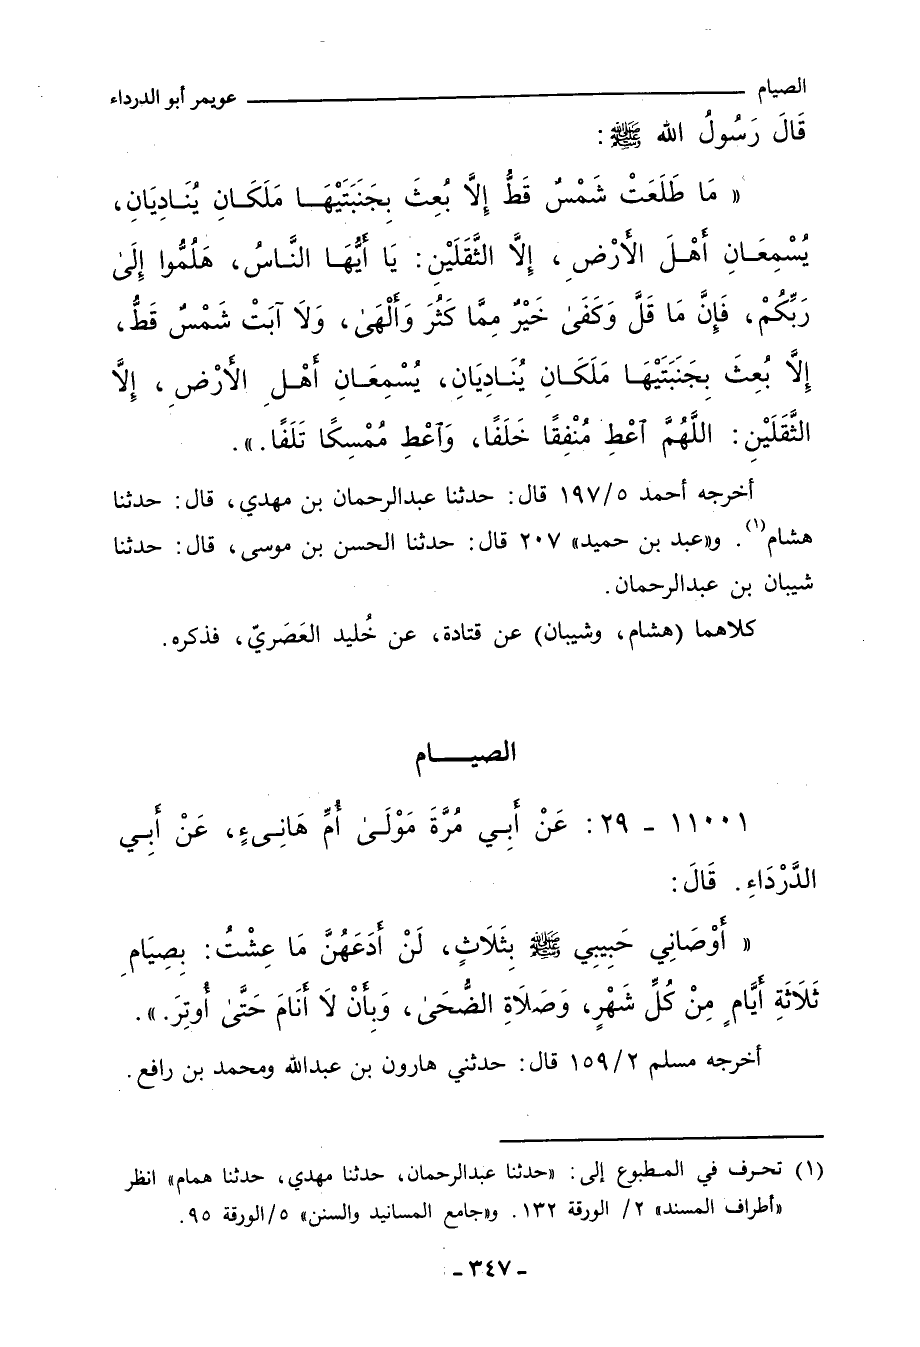 الصيام ــــــــ عويمر أبو الدرداء
قَالَ رَسُولُ اللهِ ﷺ :
« مَا طَلَعَتْ شَمْسٌ قَطُّ إِلَّا بُعِثَ بِجَنَبَتَيْهَـا مَلَكَـانِ يُنَـادِيَانِ،
يُسْمِعَـانِ أَهْـلَ الأَرْضِ ، إِلَّا الثَّقَلَيْنِ: يَا أَيُّهَـا النَّاسُ، هَلُمُّوا إِلَىٰ
رَبِّكُمْ، فَإِنَّ مَا قَلَّ وَكَفَىٰ خَيْرٌ مِمَّا كَثُرَ وَأَلْهَىٰ، وَلَا آبَتْ شَمْسٌ قَطُّ،
إِلَّا بُعِثَ بِجَنَبَتَيْهَـا مَلَكَـانِ يُنَـادِيَانِ، يُسْمِعَـانِ أَهْـلَ الأَرْضِ ، إِلَّا
الثَّقَلَيْنِ: اللَّهُمَّ آعْطِ مُنْفِقًا خَلَفًا، وَآعْطِ مُمْسِكًا تَلَفًا.».
أخرجه أحمد ٥/١٩٧ قال: حدثنا عبدالرحمان بن مهدي، قال: حدثنا
هشام(١). و«عبد بن حميد» ٢٠٧ قال: حدثنا الحسن بن موسى، قال: حدثنا
شيبان بن عبدالرحمان.
كلاهما (هشام، وشيبان) عن قتادة، عن خُليد العَصَريّ، فذكره.
الصيــــام
١١٠٠١ - ٢٩: عَنْ أَبِـي مُرَّةَ مَوْلَـىٰ أُمِّ هَانِـىءٍ، عَنْ أَبِـي
الدَّرْدَاءِ. قَالَ:
« أَوْصَانِي حَبِيبِي ﷺ بِثَلَاثٍ، لَنْ أَدَعَهُنَّ مَا عِشْتُ: بِصِيَامِ
ثَلَاثَةِ أَيَّامٍ مِنْ كُلِّ شَهْرٍ، وَصَلَاةِ الضُّحَىٰ، وَبِأَنْ لَا أَنَامَ حَتَّىٰ أُوتِرَ.».
أخرجه مسلم ٢/١٥٩ قال: حدثني هارون بن عبدالله ومحمد بن رافع.
(١) تحرف في المطبوع إلى: «حدثنا عبدالرحمان، حدثنا مهدي، حدثنا همام» انظر
«أطراف المسند» ٢/ الورقة ١٣٢. و«جامع المسانيد والسنن» ٥/الورقة ٩٥.
- ٣٤٧ -